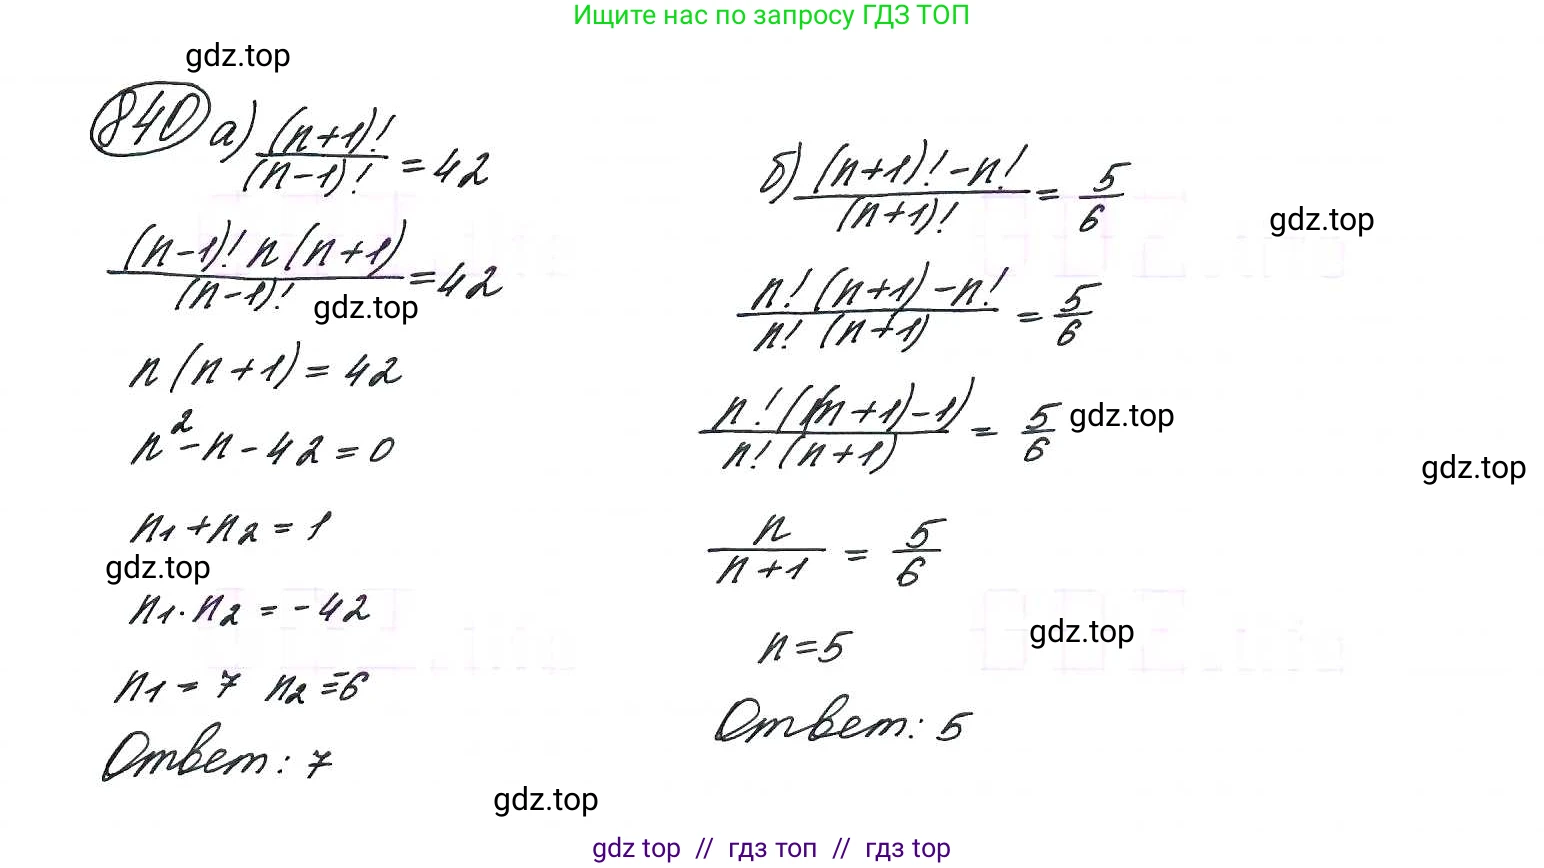 Ищите нас по запросу ГДЗ ТОП
gdz.top
840 а) (n+1)!/(n-1)! = 42
(n-1)! n (n+1)/(n-1)! = 42
gdz.top
n (n+1) = 42
n² - n - 42 = 0
n₁ + n₂ = 1
gdz.top
n₁ · n₂ = -42
n₁ = 7 n₂ = -6
Ответ: 7
gdz.top
б) (n+1)! - n!/(n+1)! = 5/6
gdz.top
n! (n+1) - n!/n! (n+1) = 5/6
n! ((n+1) - 1)/n! (n+1) = 5/6
gdz.top
gdz.top
n/n+1 = 5/6
gdz.top
n = 5
Ответ: 5
gdz top // гдз топ // гдз top